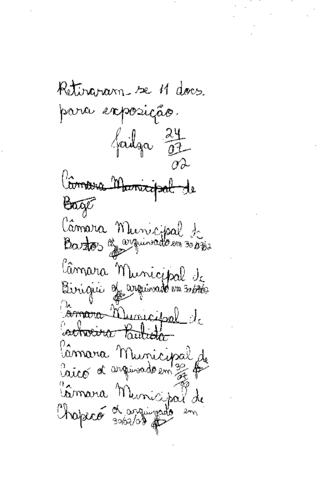 Retiraram-se 11 docs.
para exposição.
24
07
02
Câmara Municipal de
Bagé
Câmara Municipal de
Bastos arquivado em
Câmara Municipal de
Birigui arquivado em
Câmara Municipal de
Cachoeira Paulista
Câmara Municipal de
Caicó arquivado em 30
07
02
Câmara Municipal de
Chapecó arquivado em